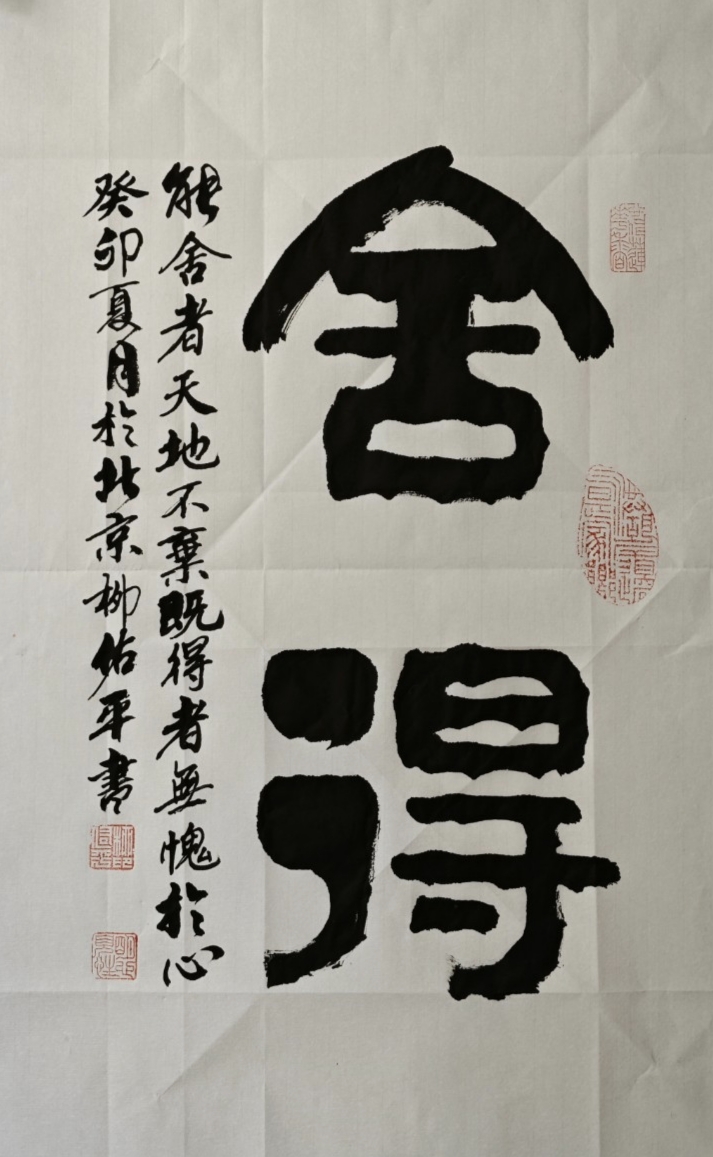 舍得
能舍者天地不棄既得者無愧於心
癸卯夏月於北京柳佑平書